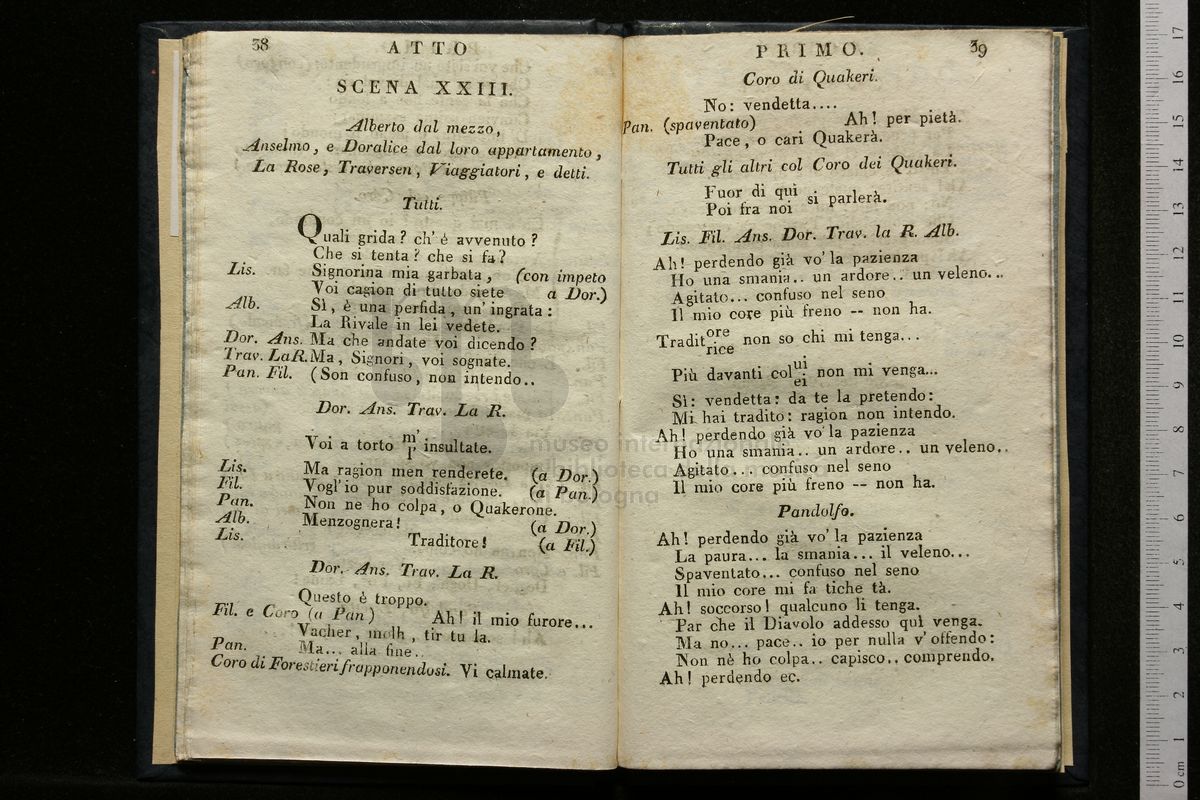 38 ATTO
SCENA XXIII.
Alberto dal mezzo,
Anselmo, e Doralice dal loro appartamento,
La Rose, Traversen, Viaggiatori, e detti.
Tutti.
Quali grida? ch' é avvenuto?
Che si tenta? che si fa?
Lis. Signorina mia garbata, (con impeto
Voi cagion di tutto siete a Dor.)
Alb. Sì, è una perfida, un' ingrata:
La Rivale in lei vedete.
Dor. Ans. Ma che andate voi dicendo?
Trav. La R. Ma, Signori, voi sognate.
Pan. Fil. (Son confuso, non intendo..
Dor. Ans. Trav. La R.
Voi a torto m' insultate.
l'
Lis. Ma ragion men renderete. (a Dor.)
Fil. Vogl'io pur soddisfazione. (a Pan.)
Pan. Non ne ho colpa, o Quakerone.
Alb. Menzognera! (a Dor.)
Lis. Traditore! (a Fil.)
Dor. Ans. Trav. La R.
Questo è troppo.
Fil. e Coro (a Pan) Ah! il mio furore...
Vacher, molh, tir tu la.
Pan. Ma... alla fine..
Coro di Forestieri frapponendosi. Vi calmate.
PRIMO. 39
Coro di Quakeri.
No: vendetta....
Pan. (spaventato) Ah! per pietà.
Pace, o cari Quakerà.
Tutti gli altri col Coro dei Quakeri.
Fuor di qui
Poi fra noi si parlerà.
Lis. Fil. Ans. Dor. Trav. la R. Alb.
Ah! perdendo già vo' la pazienza
Ho una smania.. un ardore.. un veleno...
Agitato... confuso nel seno
Il mio core più freno -- non ha.
Traditore non so chi mi tenga...
rice
Più davanti colui non mi venga...
ei
Sì: vendetta: da te la pretendo:
Mi hai tradito: ragion non intendo.
Ah! perdendo già vo' la pazienza
Ho una smania.. un ardore.. un veleno..
Agitato... confuso nel seno
Il mio core più freno -- non ha.
Pandolfo.
Ah! perdendo già vo' la pazienza
La paura... la smania... il veleno...
Spaventato... confuso nel seno
Il mio core mi fa tiche tà.
Ah! soccorso! qualcuno li tenga.
Par che il Diavolo addesso quì venga.
Ma no... pace.. io per nulla v' offendo:
Non nè ho colpa.. capisco.. comprendo.
Ah! perdendo ec.
museo internazionale
e biblioteca
di bologna
0 cm 1 2 3 4 5 6 7 8 9 10 11 12 13 14 15 16 17